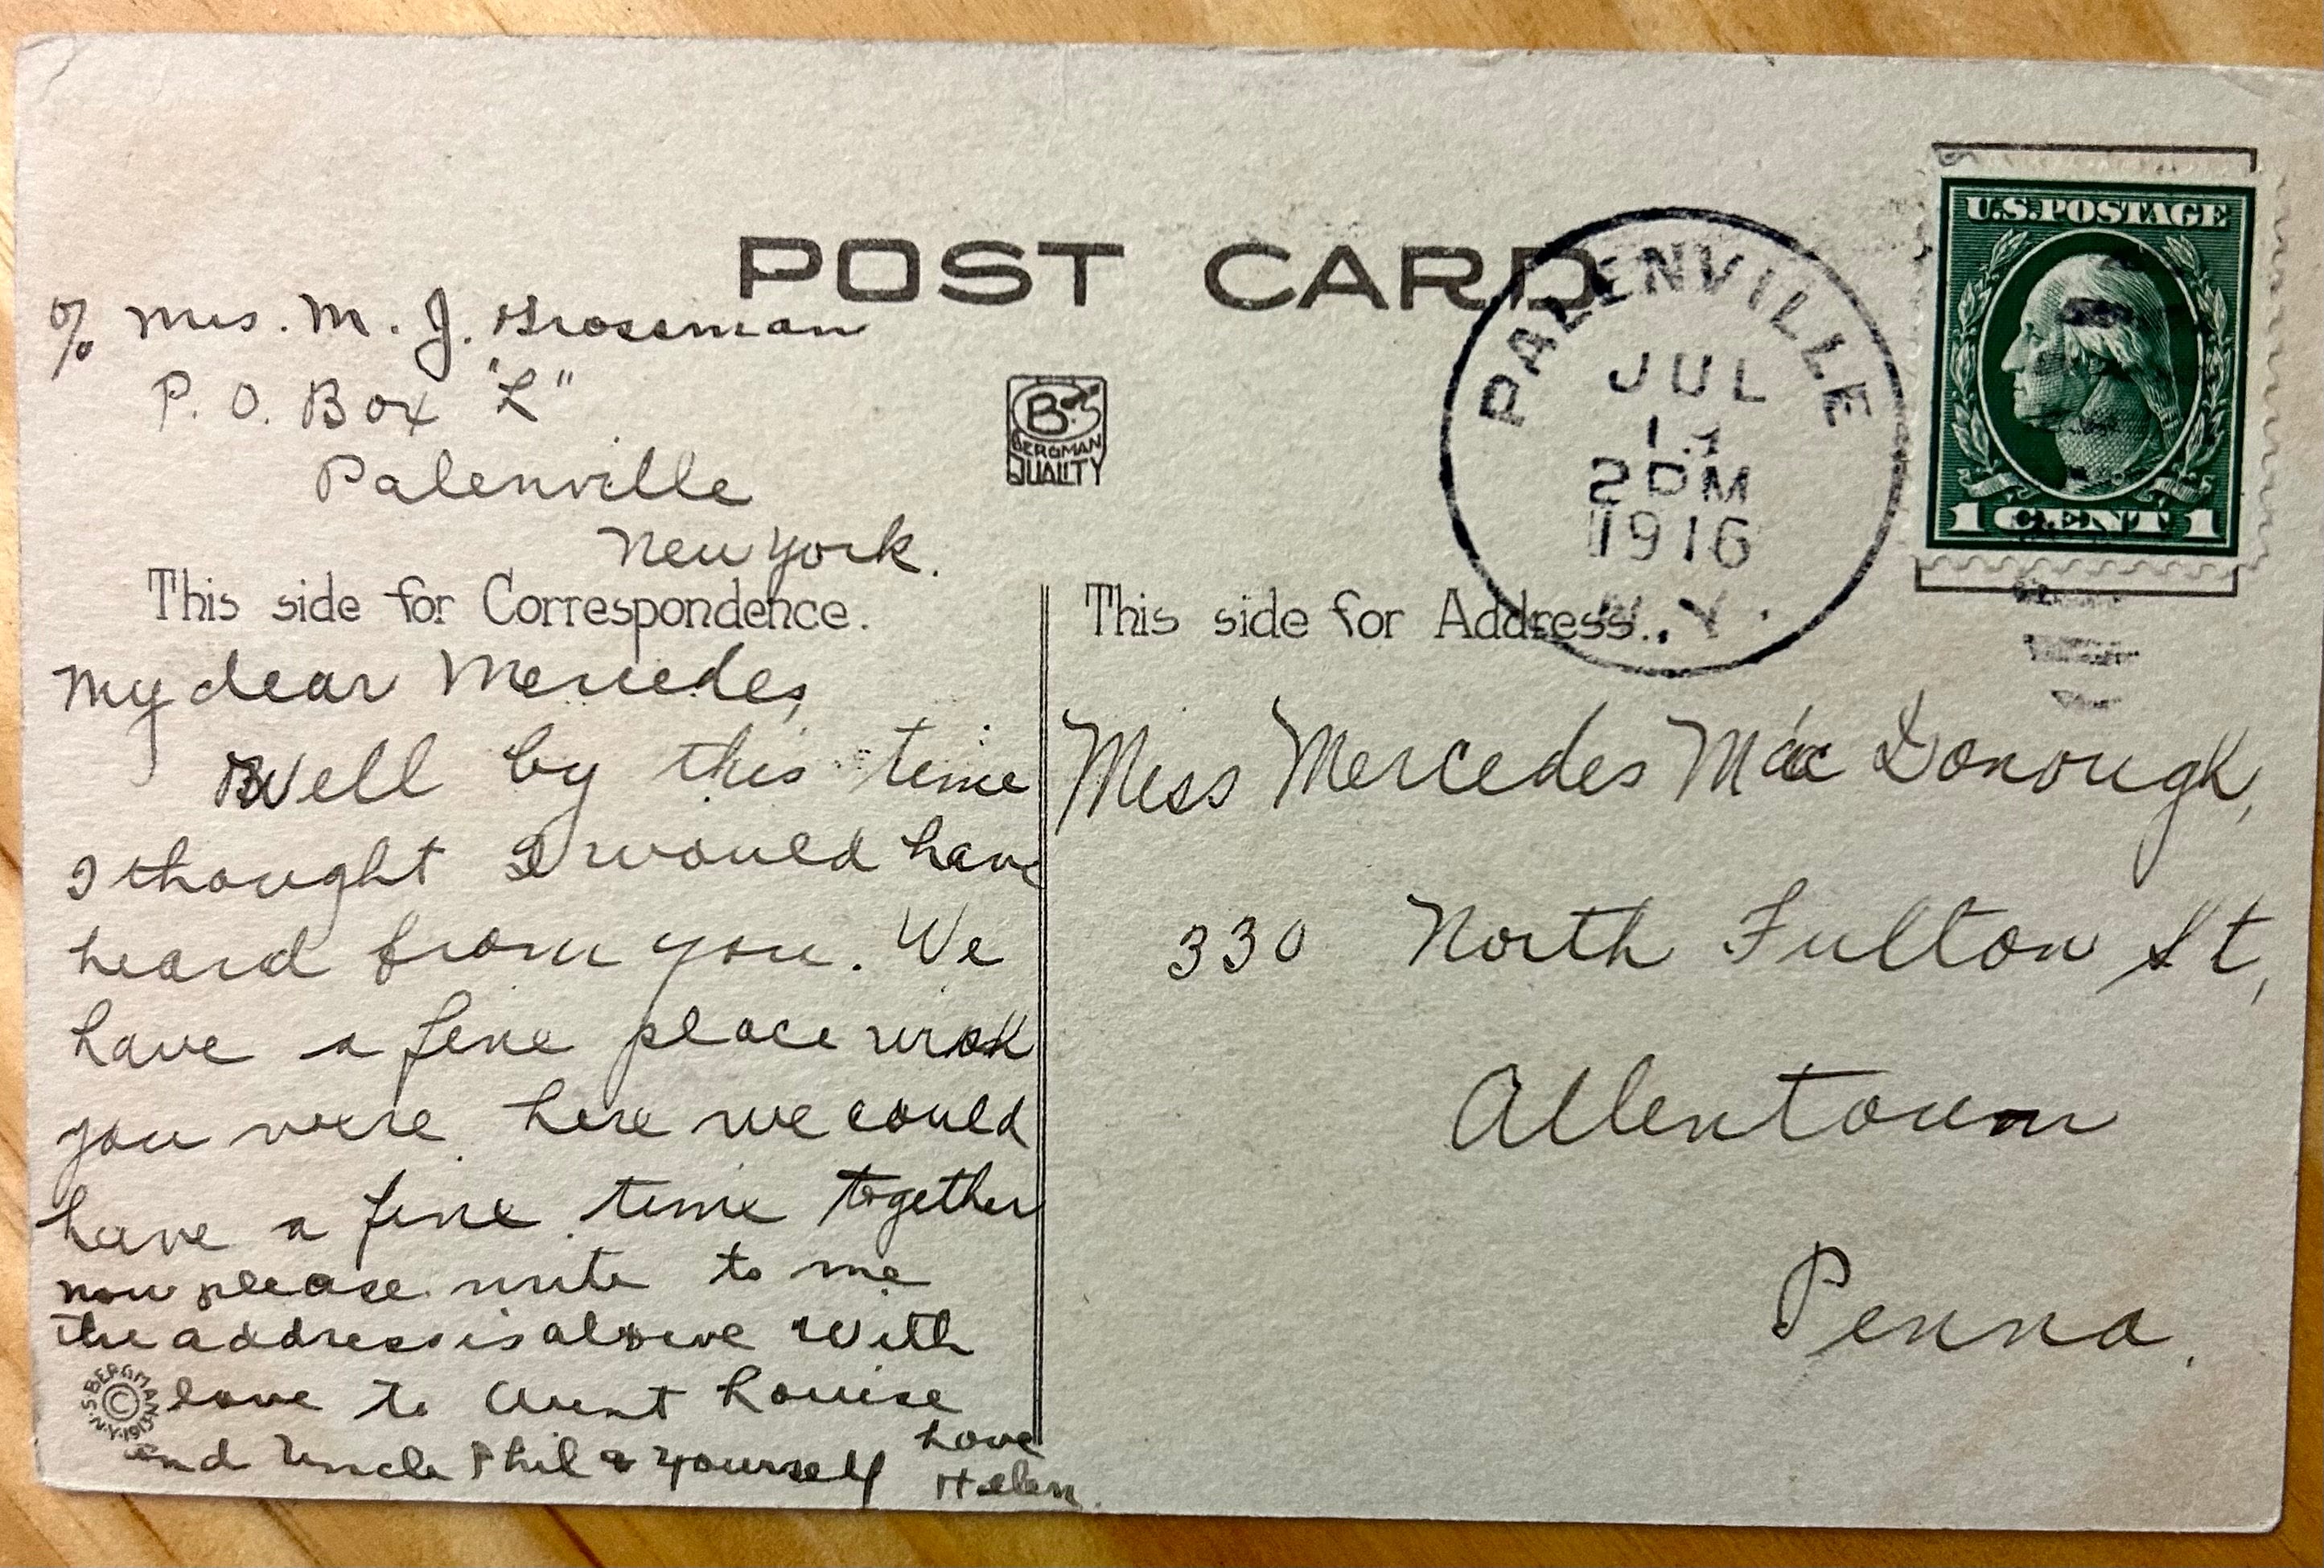 POST CARD
% Mrs. M. J. Grossman
P. O. Box "L"
Palenville
New York.
B's
BERGMAN
QUALITY
PALENVILLE
JUL
2 PM
1916
N.Y.
U.S.POSTAGE
1 CENT 1
This side for Correspondence.
My dear Mercedes,
Well by this time
I thought I would have
heard from you. We
have a fine place wish
you were here we could
have a fine time together
now please write to me
the address is above With
love to Aunt Louise
and Uncle Phil & yourself
Love
Helen.
S. BERGMAN N.Y.
©
This side for Address.
Miss Mercedes Mac Donough,
330 North Fulton St,
Allentown
Penna.